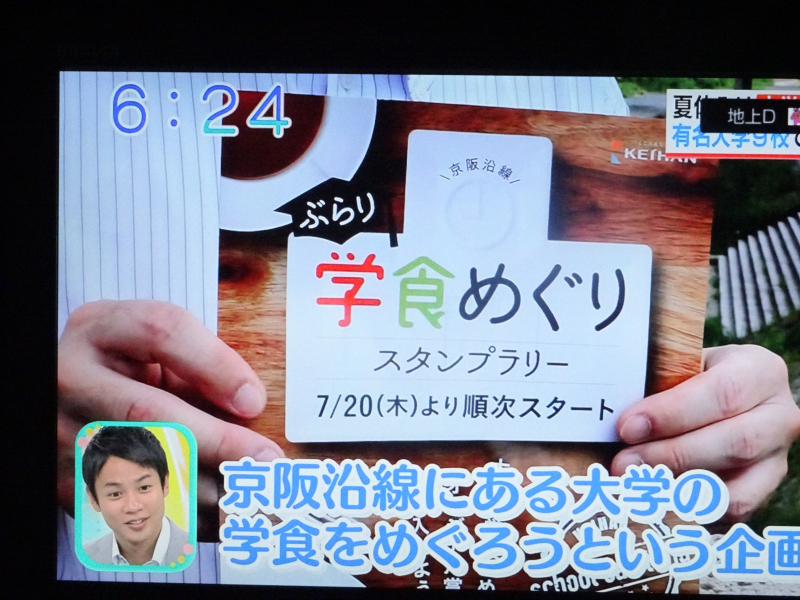 6:24
夏休
地上D
有名大学9校で
KEIHAN
\京阪沿線/
ぶらり
学食めぐり
スタンプラリー
7/20(木)より順次スタート
京阪沿線にある大学の
学食をめぐろうという企画